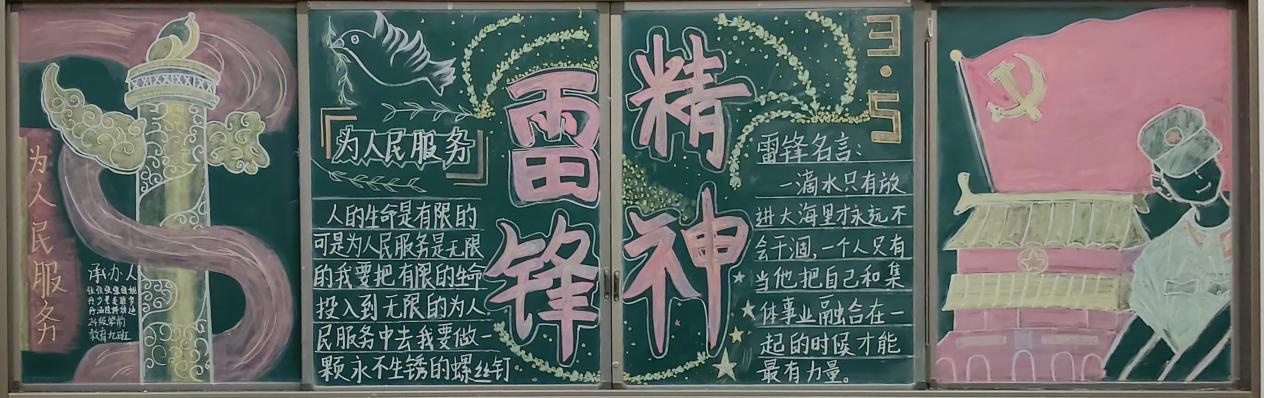 为人民服务
承办人
24级学前
教育九班
为人民服务
人的生命是有限的
可是为人民服务是无限
的我要把有限的生命
投入到无限的为人
民服务中去我要做一
颗永不生锈的螺丝钉
雷锋
精神
3·5
雷锋名言：
一滴水只有放
进大海里才永远不
会干涸，一个人只有
当他把自己和集
体事业融合在一
起的时候才能
最有力量。